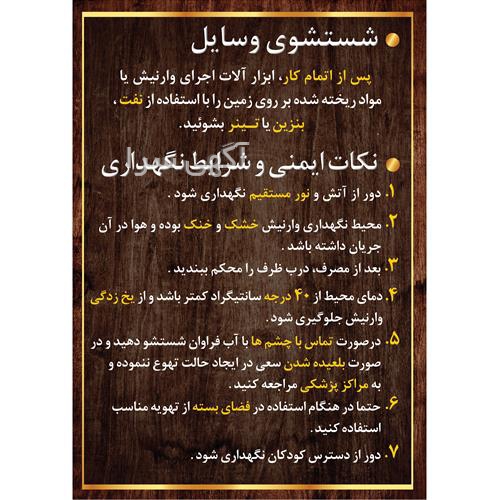 شستشوی وسایل
پس از اتمام کار، ابزار آلات اجرای وارنیش یا
مواد ریخته شده بر روی زمین را با استفاده از نفت ،
بنزین یا تینر بشوئید.
نکات ایمنی و شرایط نگهداری
۱. دور از آتش و نور مستقیم نگهداری شود .
۲. محیط نگهداری وارنیش خشک و خنک بوده و هوا در آن
جریان داشته باشد .
۳. بعد از مصرف، درب ظرف را محکم ببندید .
۴. دمای محیط از ۴۰ درجه سانتیگراد کمتر باشد و از یخ زدگی
وارنیش جلوگیری شود.
۵. درصورت تماس با چشم ها با آب فراوان شستشو دهید و در
صورت بلعیده شدن سعی در ایجاد حالت تهوع ننموده و
به مراکز پزشکی مراجعه کنید.
۶. حتما در هنگام استفاده در فضای بسته از تهویه مناسب
استفاده کنید.
۷. دور از دسترس کودکان نگهداری شود .